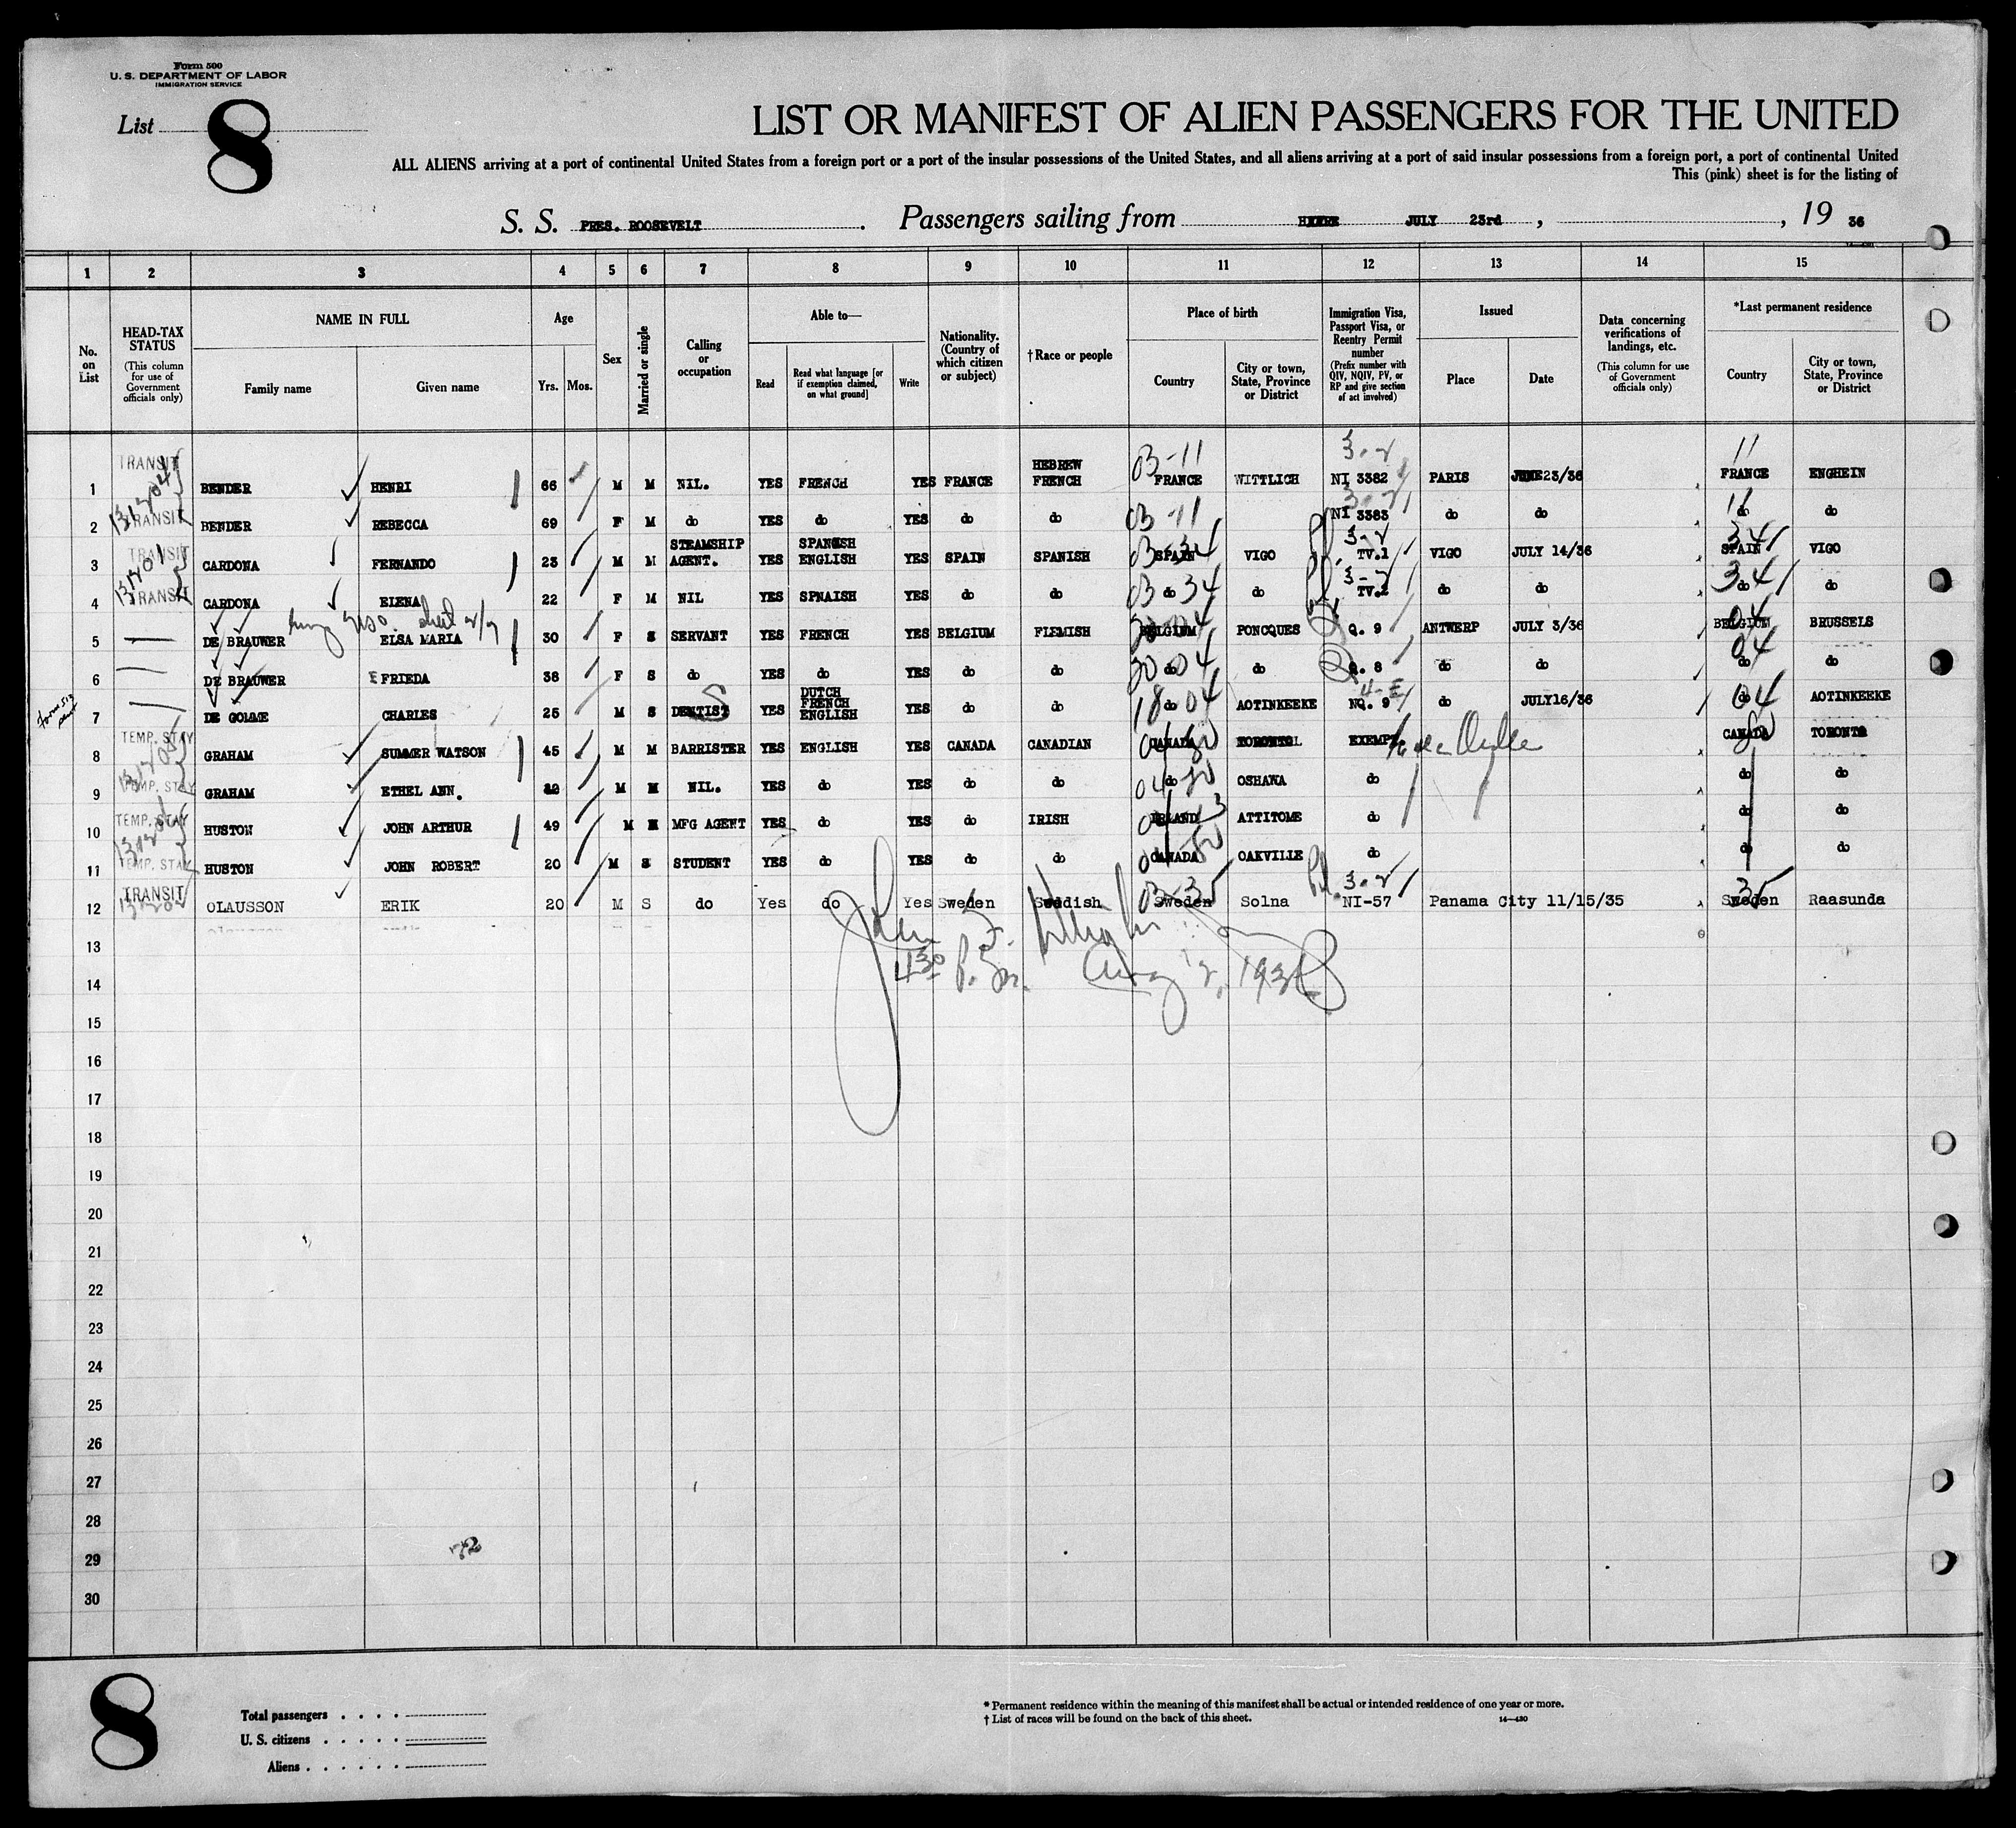 Form 500
U. S. DEPARTMENT OF LABOR
IMMIGRATION SERVICE
List 8
LIST OR MANIFEST OF ALIEN PASSENGERS FOR THE UNITED
ALL ALIENS arriving at a port of continental United States from a foreign port or a port of the insular possessions of the United States, and all aliens arriving at a port of said insular possessions from a foreign port, a port of continental United
This (pink) sheet is for the listing of
S. S. PRES. ROOSEVELT. Passengers sailing from JULY 23rd, , 19 36
1 2 3 4 5 6 7 8 9 10 11 12 13 14 15
No. on List
HEAD-TAX STATUS
(This column for use of Government officials only)
NAME IN FULL
Family name Given name
Age
Yrs. Mos.
Sex
Married or single
Calling or occupation
Able to—
Read
Read what language [or if exemption claimed, on what ground]
Write
Nationality. (Country of which citizen or subject)
†Race or people
Place of birth
Country
City or town, State, Province or District
Immigration Visa, Passport Visa, or Reentry Permit number
(Prefix number with QIV, NQIV, PV, or RP and give section of act involved)
Issued
Place Date
Data concerning verifications of landings, etc.
(This column for use of Government officials only)
*Last permanent residence
Country
City or town, State, Province or District
1 TRANSIT BENDER HENRI 66 M M NIL. YES FRENCH YES FRANCE HEBREW FRENCH 03-11 FRANCE WITTLICH 3-2 NI 3382 PARIS JUNE23/36 11 FRANCE ENGHEIN
2 TRANSIT BENDER REBECCA 69 F M do YES do YES do do 03-11 NI 3383 do do 11 do do
3 TRANSIT CARDONA FERNANDO 23 M M STEAMSHIP AGENT. YES SPANISH ENGLISH YES SPAIN SPANISH 03-34 SPAIN VIGO 3-2 TV.1 VIGO JULY 14/36 34 SPAIN VIGO
4 TRANSIT CARDONA ELENA 22 F M NIL YES SPNAISH YES do do 03 34 do do 3-2 TV.2 do do 34 do do
5 DE BRAUWER ELSA MARIA 30 F S SERVANT YES FRENCH YES BELGIUM FLEMISH BELGIUM PONCQUES Q. 9 ANTWERP JULY 3/36 04 BELGIUM BRUSSELS
6 DE BRAUWER FRIEDA 38 F S do YES do YES do do 20 04 do do Q. 8 do do 04 do do
7 DE GOLME CHARLES 25 M S DENTIST YES DUTCH FRENCH ENGLISH YES do do 18 04 do AOTINKEEKE NQ. 9 do JULY16/36 04 do AOTINKEEKE
8 TEMP. STAY GRAHAM SUMMER WATSON 45 M M BARRISTER YES ENGLISH YES CANADA CANADIAN CANADA TORONTO EXEMPT. CANADA TORONTO
9 TEMP. STAY GRAHAM ETHEL ANN. M M NIL. YES do YES do do do OSHAWA do do do
10 TEMP. STAY HUSTON JOHN ARTHUR 49 M M MFG AGENT YES do YES do IRISH IRLAND ATTITOME do do do
11 TEMP. STAY HUSTON JOHN ROBERT 20 M S STUDENT YES do YES do do CANADA OAKVILLE do do do
12 TRANSIT OLAUSSON ERIK 20 M S do Yes do Yes Sweden Swddish 03-35 Sweden Solna 3-2 NI-57 Panama City 11/15/35 35 Sweden Raasunda
13
130 P.m. Aug 2, 1936
14
15
16
17
18
19
20
21
22
23
24
25
26
27
28
29
72
30
8
Total passengers . . . .
U. S. citizens . . . . .
Aliens . . . . . .
* Permanent residence within the meaning of this manifest shall be actual or intended residence of one year or more.
† List of races will be found on the back of this sheet. 14—430